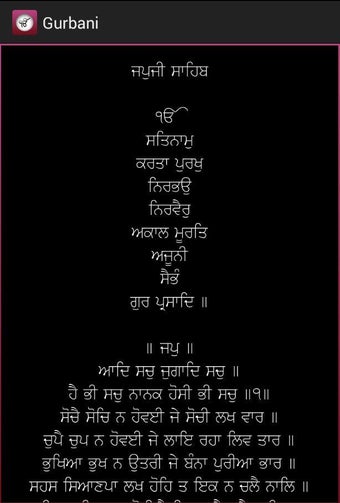 Gurbani
ਜਪੁਜੀ ਸਾਹਿਬ
ੴ
ਸਤਿਨਾਮੁ
ਕਰਤਾ ਪੁਰਖੁ
ਨਿਰਭਉ
ਨਿਰਵੈਰੁ
ਅਕਾਲ ਮੂਰਤਿ
ਅਜੂਨੀ
ਸੈਭੰ
ਗੁਰ ਪ੍ਰਸਾਦਿ ॥
॥ ਜਪੁ ॥
ਆਦਿ ਸਚੁ ਜੁਗਾਦਿ ਸਚੁ ॥
ਹੈ ਭੀ ਸਚੁ ਨਾਨਕ ਹੋਸੀ ਭੀ ਸਚੁ ॥੧॥
ਸੋਚੈ ਸੋਚਿ ਨ ਹੋਵਈ ਜੇ ਸੋਚੀ ਲਖ ਵਾਰ ॥
ਚੁਪੈ ਚੁਪ ਨ ਹੋਵਈ ਜੇ ਲਾਇ ਰਹਾ ਲਿਵ ਤਾਰ ॥
ਭੁਖਿਆ ਭੁਖ ਨ ਉਤਰੀ ਜੇ ਬੰਨਾ ਪੁਰੀਆ ਭਾਰ ॥
ਸਹਸ ਸਿਆਣਪਾ ਲਖ ਹੋਹਿ ਤ ਇਕ ਨ ਚਲੈ ਨਾਲਿ ॥